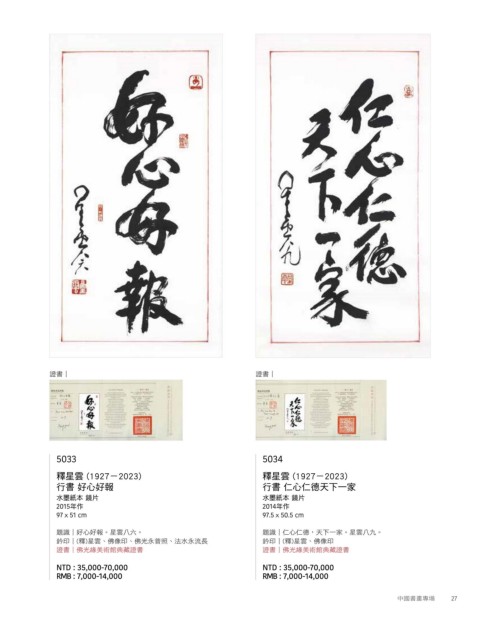 好心好報
星雲八六
仁心仁德
天下一家
星雲八九
證書｜
證書｜
好心好報
仁心仁德
天下一家
5033
釋星雲（1927－2023）
行書 好心好報
水墨紙本 鏡片
2015年作
97 x 51 cm
題識｜好心好報。星雲八六。
鈐印｜(釋)星雲、佛像印、佛光永普照、法水永流長
證書｜佛光緣美術館典藏證書
NTD : 35,000-70,000
RMB : 7,000-14,000
5034
釋星雲（1927－2023）
行書 仁心仁德天下一家
水墨紙本 鏡片
2014年作
97.5 x 50.5 cm
題識｜仁心仁德，天下一家。星雲八九。
鈐印｜(釋)星雲、佛像印
證書｜佛光緣美術館典藏證書
NTD : 35,000-70,000
RMB : 7,000-14,000
中國書畫專場 27